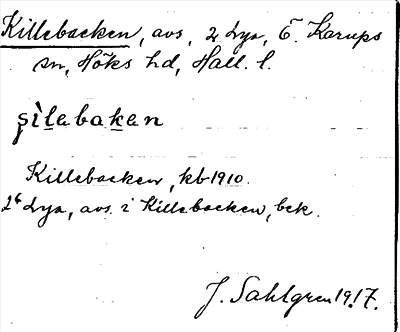 Killebacken, avs, 2 Lya, Ö. Karups
sn, Höks hd, Hall. l.
şìlebaken
Killebacken, kb 1910.
2 Lya, avs. i Killebacken, bek.
J. Sahlgren 1917.